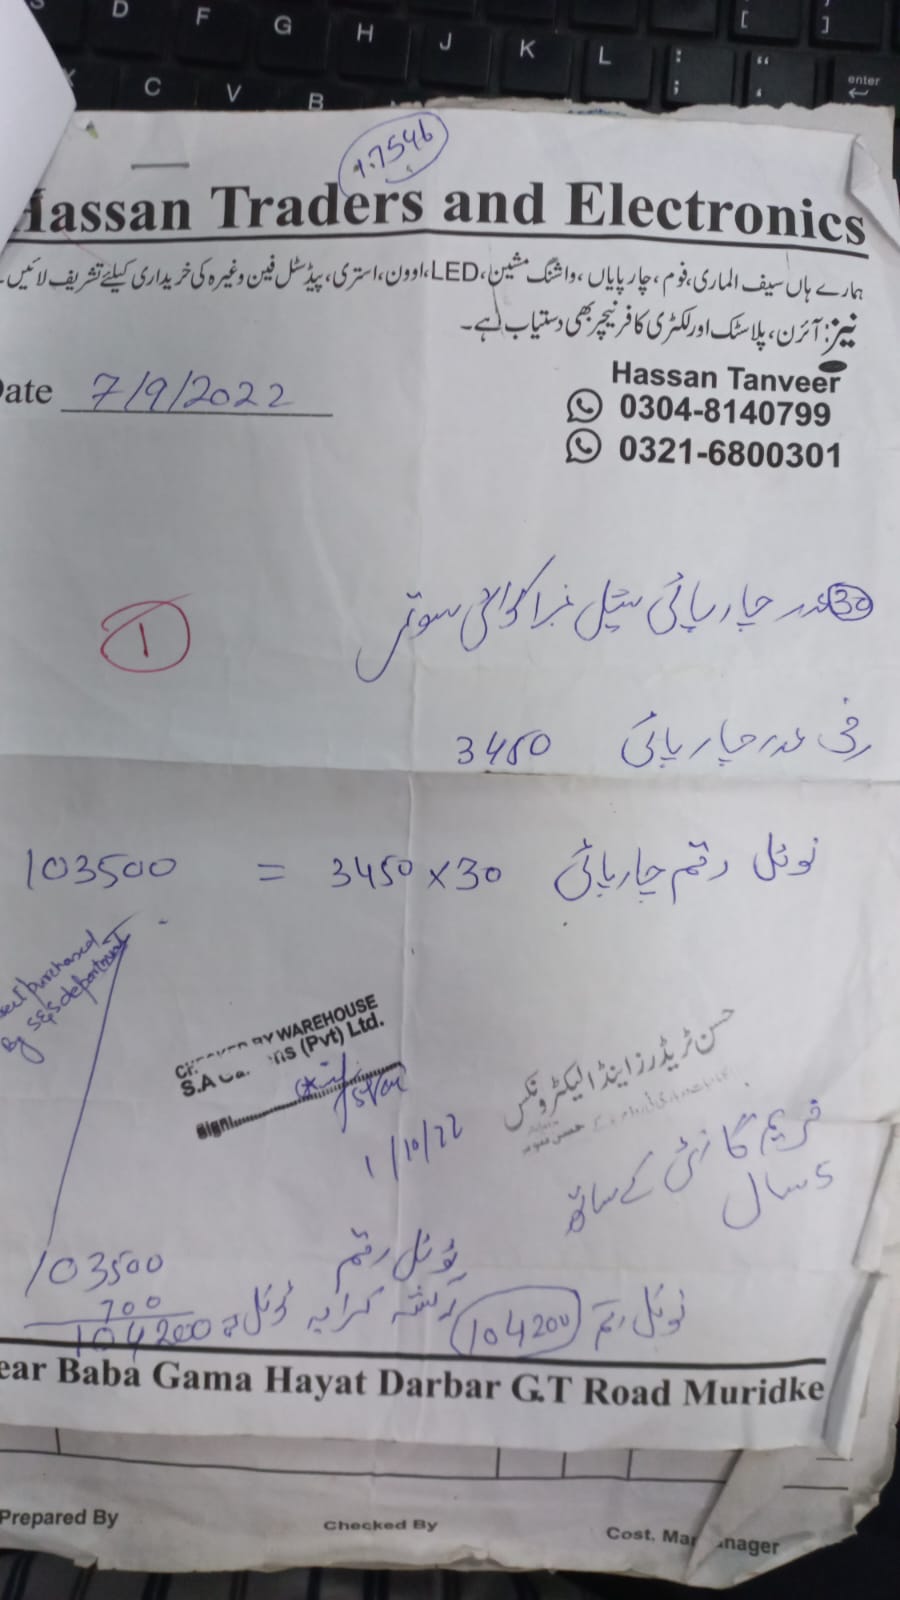 D F G H J K L : ; " ' [ ] enter
C V B
1.7546
Hassan Traders and Electronics
ہمارے ہاں سیف الماری، فوم، چارپایاں، واشنگ مشین، LED، اوون، استری، پیڈسٹل فین وغیرہ کی خریداری کیلئے تشریف لائیں۔
نیز: آئرن، پلاسٹک اور لکڑی کا فرنیچر بھی دستیاب ہے۔
Hassan Tanveer
Date 7/9/2022
0304-8140799
0321-6800301
30 عدد چارپائی سٹیل
1
فی عدد چارپائی 3450
ٹوٹل رقم چارپائی 3450 x 30 = 103500
purchased
By S&S department
BY WAREHOUSE
S.A (Pvt) Ltd.
Sign
1/10/22
حسن ٹریڈرز اینڈ الیکٹرونکس
فریم گارنٹی کے ساتھ
5 سال
103500
700
104200
ٹوٹل رقم
رکشہ کرایہ ٹوٹل =
ٹوٹل رقم 104200
ear Baba Gama Hayat Darbar G.T Road Muridke
Prepared By
Checked By
Cost. Manager